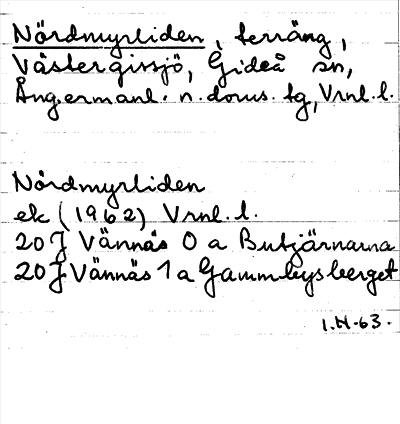 Nördmyrliden, terräng,
Västergissjö, Gideå sn,
Ångermanl. n. doms. tg, Vrnl. l.
Nördmyrliden
ek (1962) Vrnl. l.
20J Vännäs 0 a Butjärnarna
20J Vännäs 1 a Gammbysberget
I.H-63.